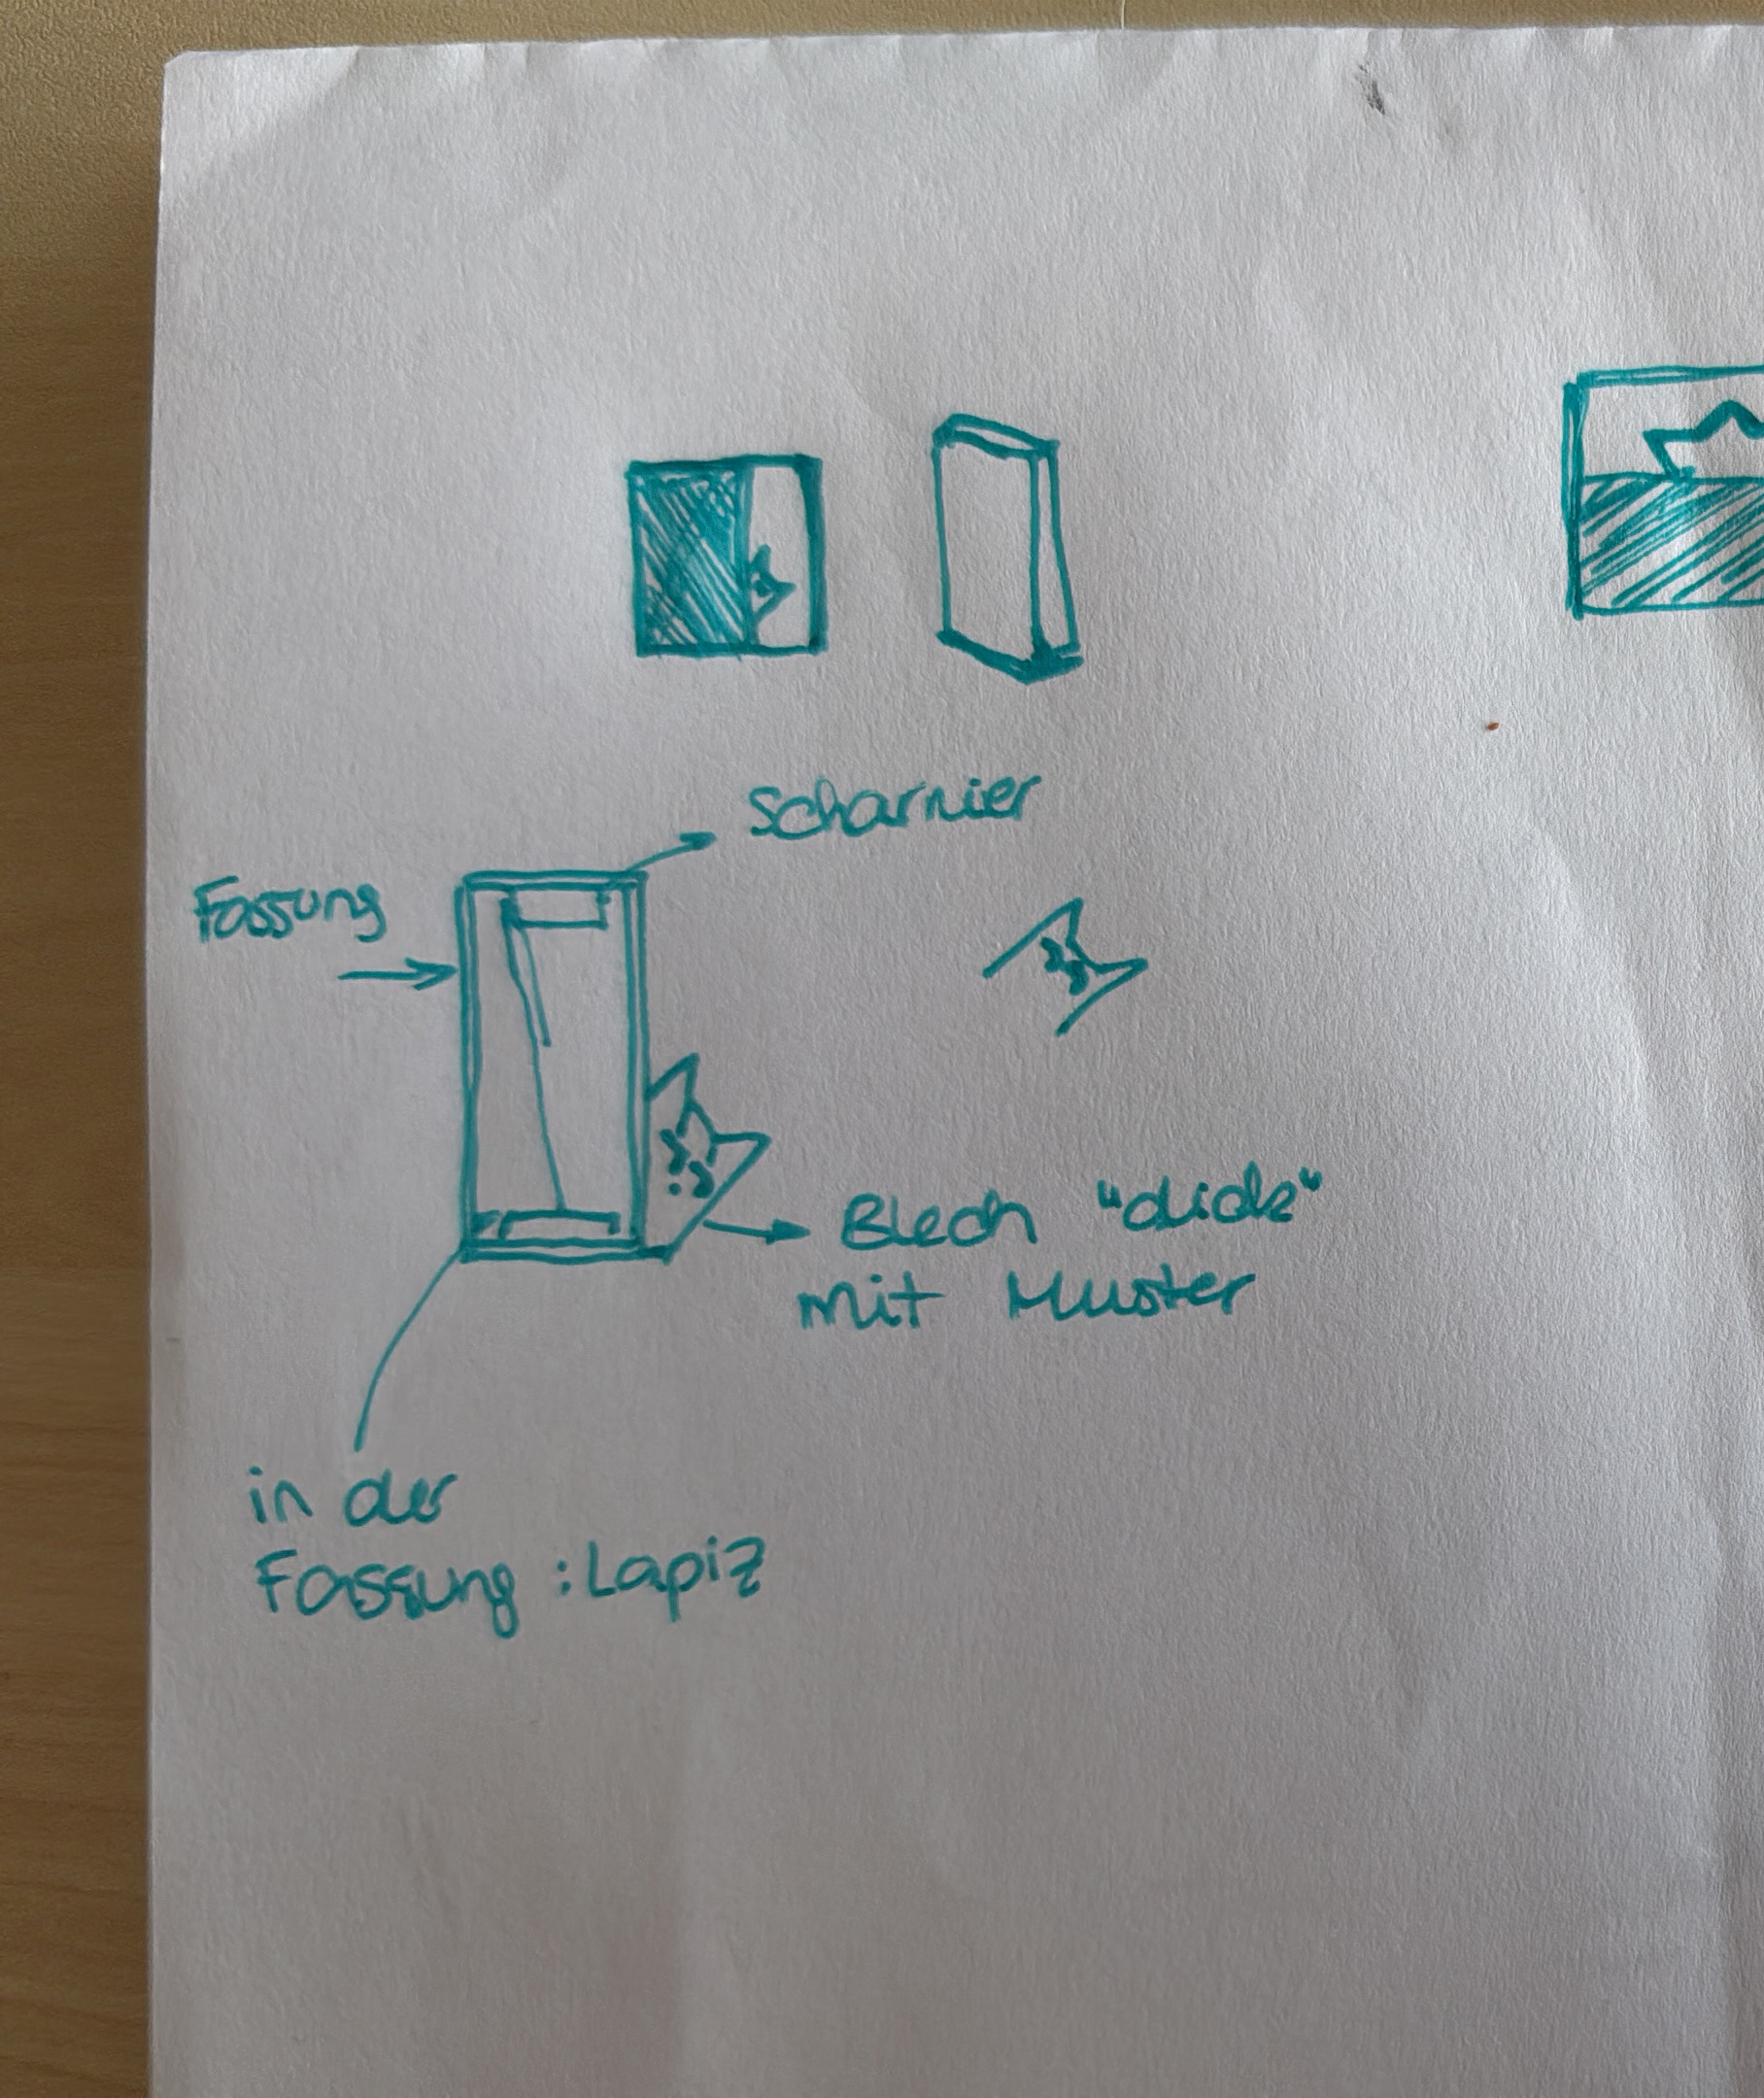 Scharnier
Fassung
Blech "dick"
mit Muster
in der
Fassung : Lapiz